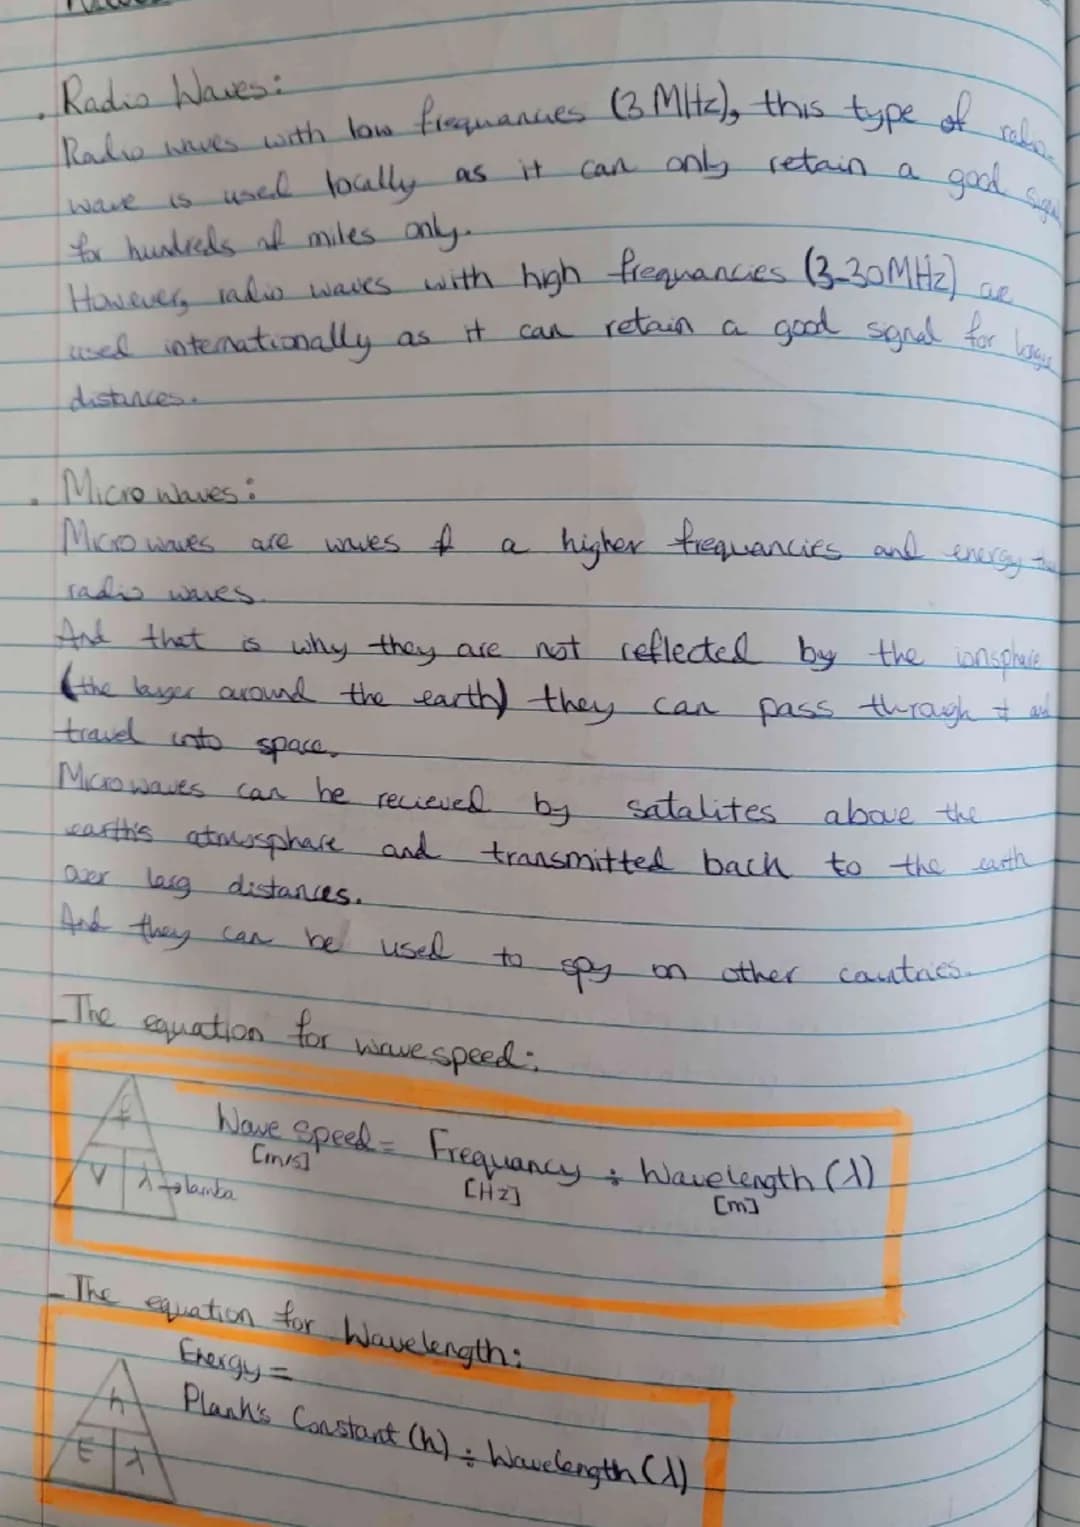 Radio Waves:
Radio waves with low frequancies (3 MHz), this type of radio
wave is used locally as it can only retain a good signal
for hundreds of miles only.
However, radio waves with high frequancies (3-30MHz) are
used internationally as it can retain a good signal for longer
distances.
Micro waves:
Micro waves are waves of a higher frequancies and energy than
radio waves.
And that is why they are not reflected by the ionsphare
(the layer around the earth) they can pass through it and
travel into space.
Microwaves can be recieved by satalites above the
earth's atmosphare and transmitted back to the earth
over larg distances.
And they can be used to spy on other countries.
The equation for wave speed:
Wave Speed = Frequancy ÷ Wavelength (λ)
[m/s] [Hz] [m]
f
V λ → lamba
The equation for Wavelength:
Energy =
Plank's Constant (h) ÷ Wavelength (λ)
h
E λ